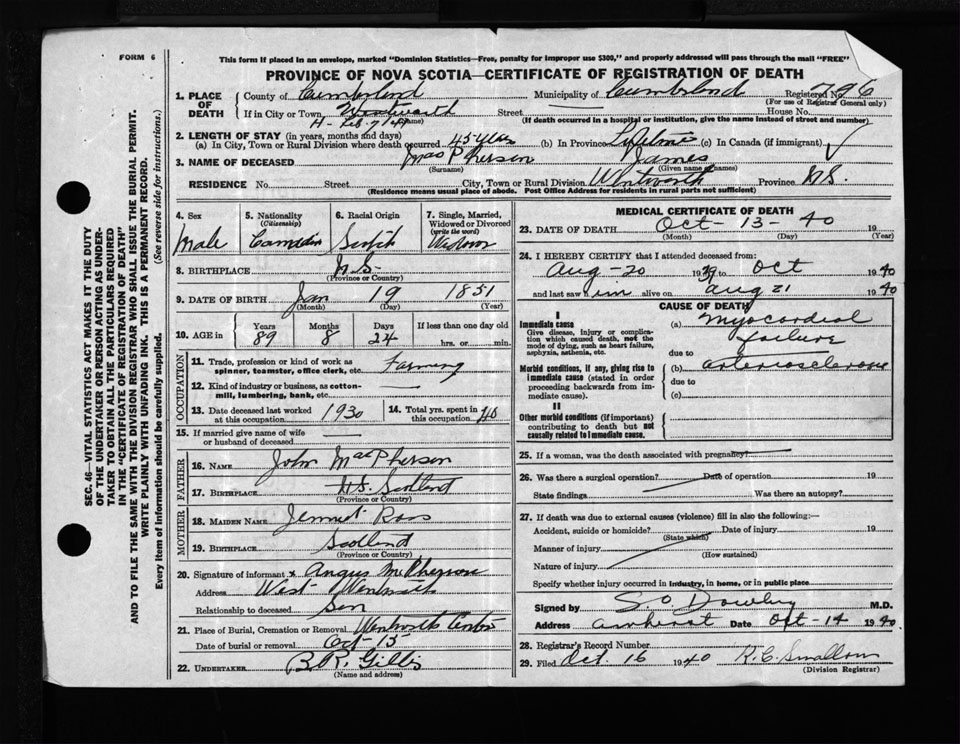 FORM 6
This form if placed in an envelope, marked "Dominion Statistics—Free, penalty for improper use $300," and properly addressed will pass through the mail "FREE"
PROVINCE OF NOVA SCOTIA—CERTIFICATE OF REGISTRATION OF DEATH
1. PLACE OF DEATH
County of Cumberland Municipality of Cumberland Registered No. 796
(For use of Registrar General only)
If in City or Town, Wentworth Street House No.
(name) (If death occurred in a hospital or institution, give the name instead of street and number)
2. LENGTH OF STAY (in years, months and days)
(a) In City, Town or Rural Division where death occurred 45 years (b) In Province Lifetime (c) In Canada (if immigrant)
3. NAME OF DECEASED MacPherson James
(Surname) (Given name or names)
RESIDENCE No. Street City, Town or Rural Division Wentworth Province N.S.
(Residence means usual place of abode. Post Office Address for residents in rural parts not sufficient)
4. Sex Male
5. Nationality (Citizenship) Canadian
6. Racial Origin Scotch
7. Single, Married, Widowed or Divorced (write the word) Widower
8. BIRTHPLACE N.S.
(Province or Country)
9. DATE OF BIRTH Jan 19 1851
(Month) (Day) (Year)
10. AGE in Years 89 Months 8 Days 24 If less than one day old hrs. or min.
OCCUPATION
11. Trade, profession or kind of work as spinner, teamster, office clerk, etc. Farming
12. Kind of industry or business, as cotton-mill, lumbering, bank, etc.
13. Date deceased last worked at this occupation 1930
14. Total yrs. spent in this occupation 40
15. If married give name of wife or husband of deceased
FATHER
16. NAME John MacPherson
17. BIRTHPLACE Scotland
(Province or Country)
MOTHER
18. MAIDEN NAME Jennet Ross
19. BIRTHPLACE Scotland
(Province or Country)
20. Signature of informant x Angus McPherson
Address West Wentworth
Relationship to deceased Son
21. Place of Burial, Cremation or Removal Wentworth Centre
Date of burial or removal Oct-15
22. UNDERTAKER B.R. Gillis
(Name and address)
MEDICAL CERTIFICATE OF DEATH
23. DATE OF DEATH Oct- 13- 40 19
(Month) (Day) (Year)
24. I HEREBY CERTIFY that I attended deceased from:
Aug-20 1939 to Oct 1940
and last saw him alive on Aug 21 1940
CAUSE OF DEATH
I
Immediate cause
Give disease, injury or complication which caused death, not the mode of dying, such as heart failure, asphyxia, asthenia, etc.
(a) Myocardial failure
due to
Morbid conditions, if any, giving rise to immediate cause (stated in order proceeding backwards from immediate cause).
(b) arteriosclerosis
due to
(c)
II
Other morbid conditions (if important) contributing to death but not causally related to immediate cause.
25. If a woman, was the death associated with pregnancy?
26. Was there a surgical operation? Date of operation 19
State findings Was there an autopsy?
27. If death was due to external causes (violence) fill in also the following:—
Accident, suicide or homicide? Date of injury 19
(State which)
Manner of injury
(How sustained)
Nature of injury
Specify whether injury occurred in industry, in home, or in public place
Signed by M.D.
Address Amherst Date Oct-14 1940
28. Registrar's Record Number
29. Filed Oct. 16 1940 R.C. Smallom
(Division Registrar)
SEC. 46—VITAL STATISTICS ACT MAKES IT THE DUTY
OF THE UNDERTAKER OR PERSON ACTING AS UNDER-
TAKER TO OBTAIN ALL THE PARTICULARS REQUIRED
IN THE "CERTIFICATE OF REGISTRATION OF DEATH"
AND TO FILE THE SAME WITH THE DIVISION REGISTRAR WHO SHALL ISSUE THE BURIAL PERMIT.
WRITE PLAINLY WITH UNFADING INK. THIS IS A PERMANENT RECORD.
Every item of information should be carefully supplied. (See reverse side for instructions.)